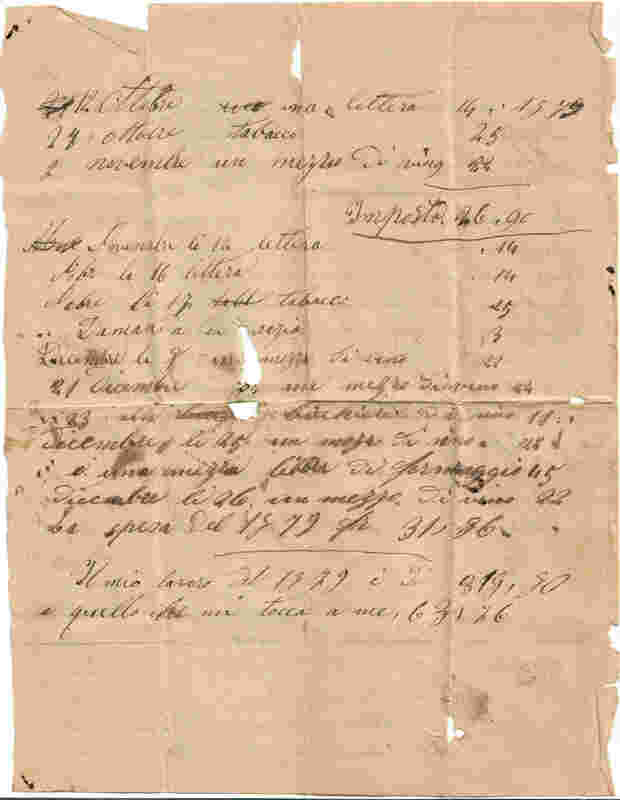 12 Ottobre una lettera 14 : 1879
24 ottobre tabacco 25
2 novembre un mezzo di vino 22
Imposto 26,90
li 14 lettera . 14
9bre li 16 lettera . 14
Nobre li 17 tabacco 25
3
Dicembre li 9 un mezzo di vino 22
21 dicembre un mezzo di vino 22
23 un bichiere di vino 11
dicembre li 25 un mezzo di vino . 22
e una mezza libbra di formaggio 45
dicembre li 26 un mezzo di vino 22
La spesa del 1879 fr 31,86
Il mio lavoro del 1879 è 319,50
e quello che mi tocca a me, 63,26